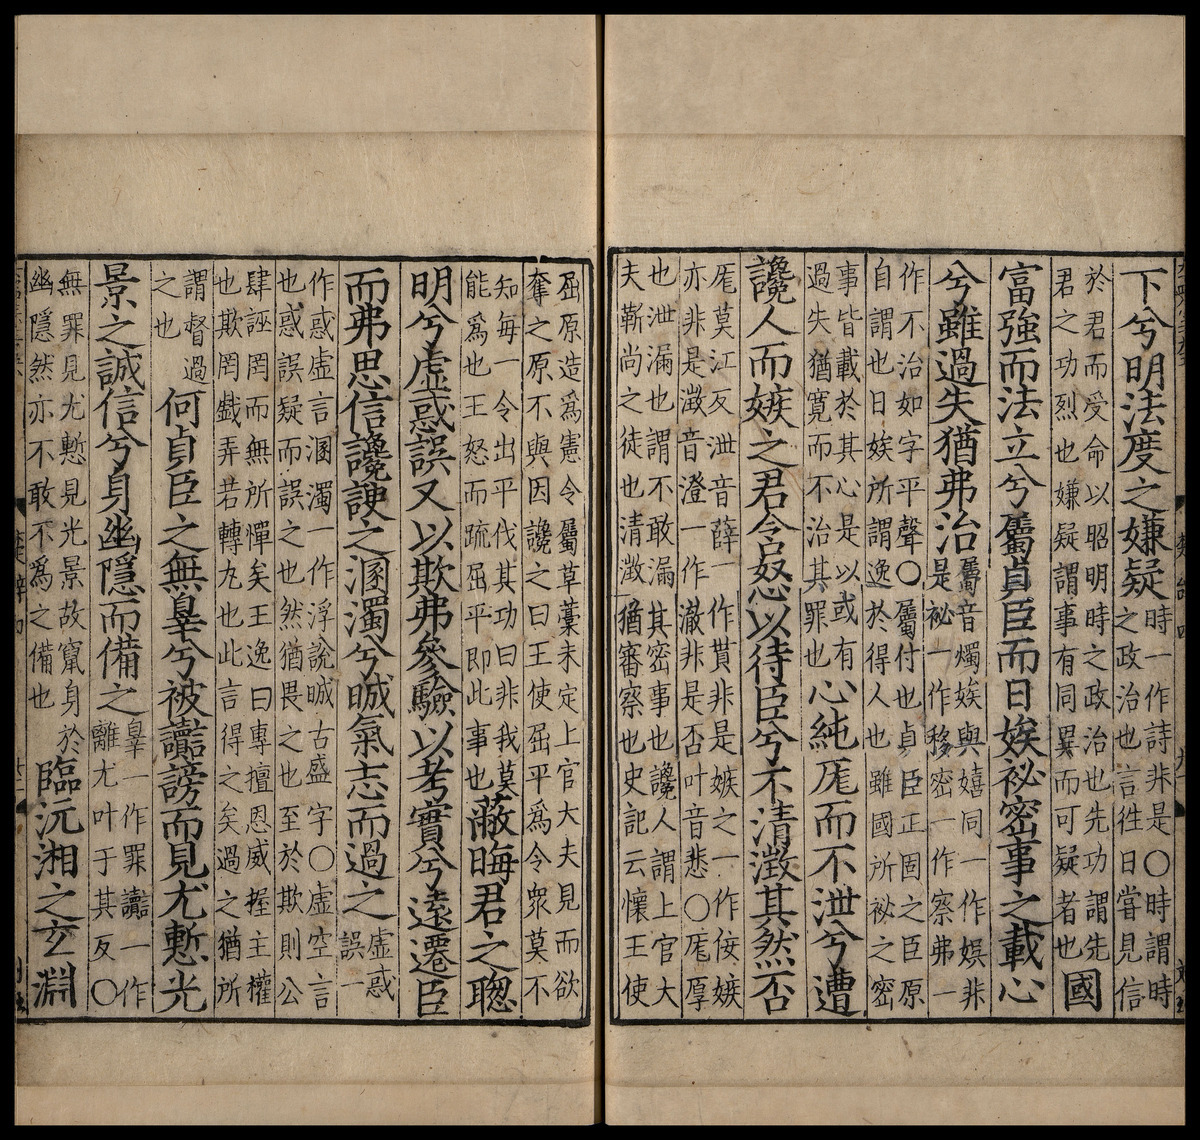 下兮明法度之嫌疑
時一作詩非是〇時謂時
之政治也言徃日嘗見信
於君而受命以昭明時之政治也先功謂先
君之功烈也嫌疑謂事有同異而可疑者也
國
富強而法立兮屬貞臣而日娭祕密事之載心
兮雖過失猶弗治
屬音燭娭與嬉同一作娯非
是祕一作移密一作察弗一
作不治如字平聲〇屬付也貞臣正固之臣原
自謂也日娭所謂逸於得人也雖國所祕之密
事皆載於其心是以或有
過失猶寛而不治其罪也
心純厖而不泄兮遭
讒人而嫉之君含怒以待臣兮不清澂其然否
厖莫江反泄音薛一作貰非是嫉之一作佞嫉
亦非是澂音澄一作澈非是否叶音悲〇厖厚
也泄漏也謂不敢漏其密事也讒人謂上官大
夫靳尚之徒也清澂猶審察也史記云懷王使
屈原造爲憲令屬草藁未定上官大夫見而欲
奪之原不與因讒之曰王使屈平爲令衆莫不
知每一令出平伐其功曰非我莫
能爲也王怒而疏屈平即此事也
蔽晦君之聰
明兮虚惑誤又以欺弗參驗以考實兮遠遷臣
而弗思信讒諛之溷濁兮晠氣志而過之
虚惑
誤一
作惑虚言溷濁一作浮說晠古盛字〇虚空言
也惑誤疑而誤之也然猶畏之也至於欺則公
肆誣罔而無所憚矣王逸曰專擅恩威握主權
也欺罔戲弄若轉丸也此言得之矣過之猶所
謂督過
之也
何貞臣之無辠兮被讟謗而見尤慙光
景之誠信兮身幽隱而備之
辠一作罪讟一作
離尤叶于其反〇
無罪見尤慙見光景故竄身於
幽隱然亦不敢不爲之備也
臨沅湘之玄淵